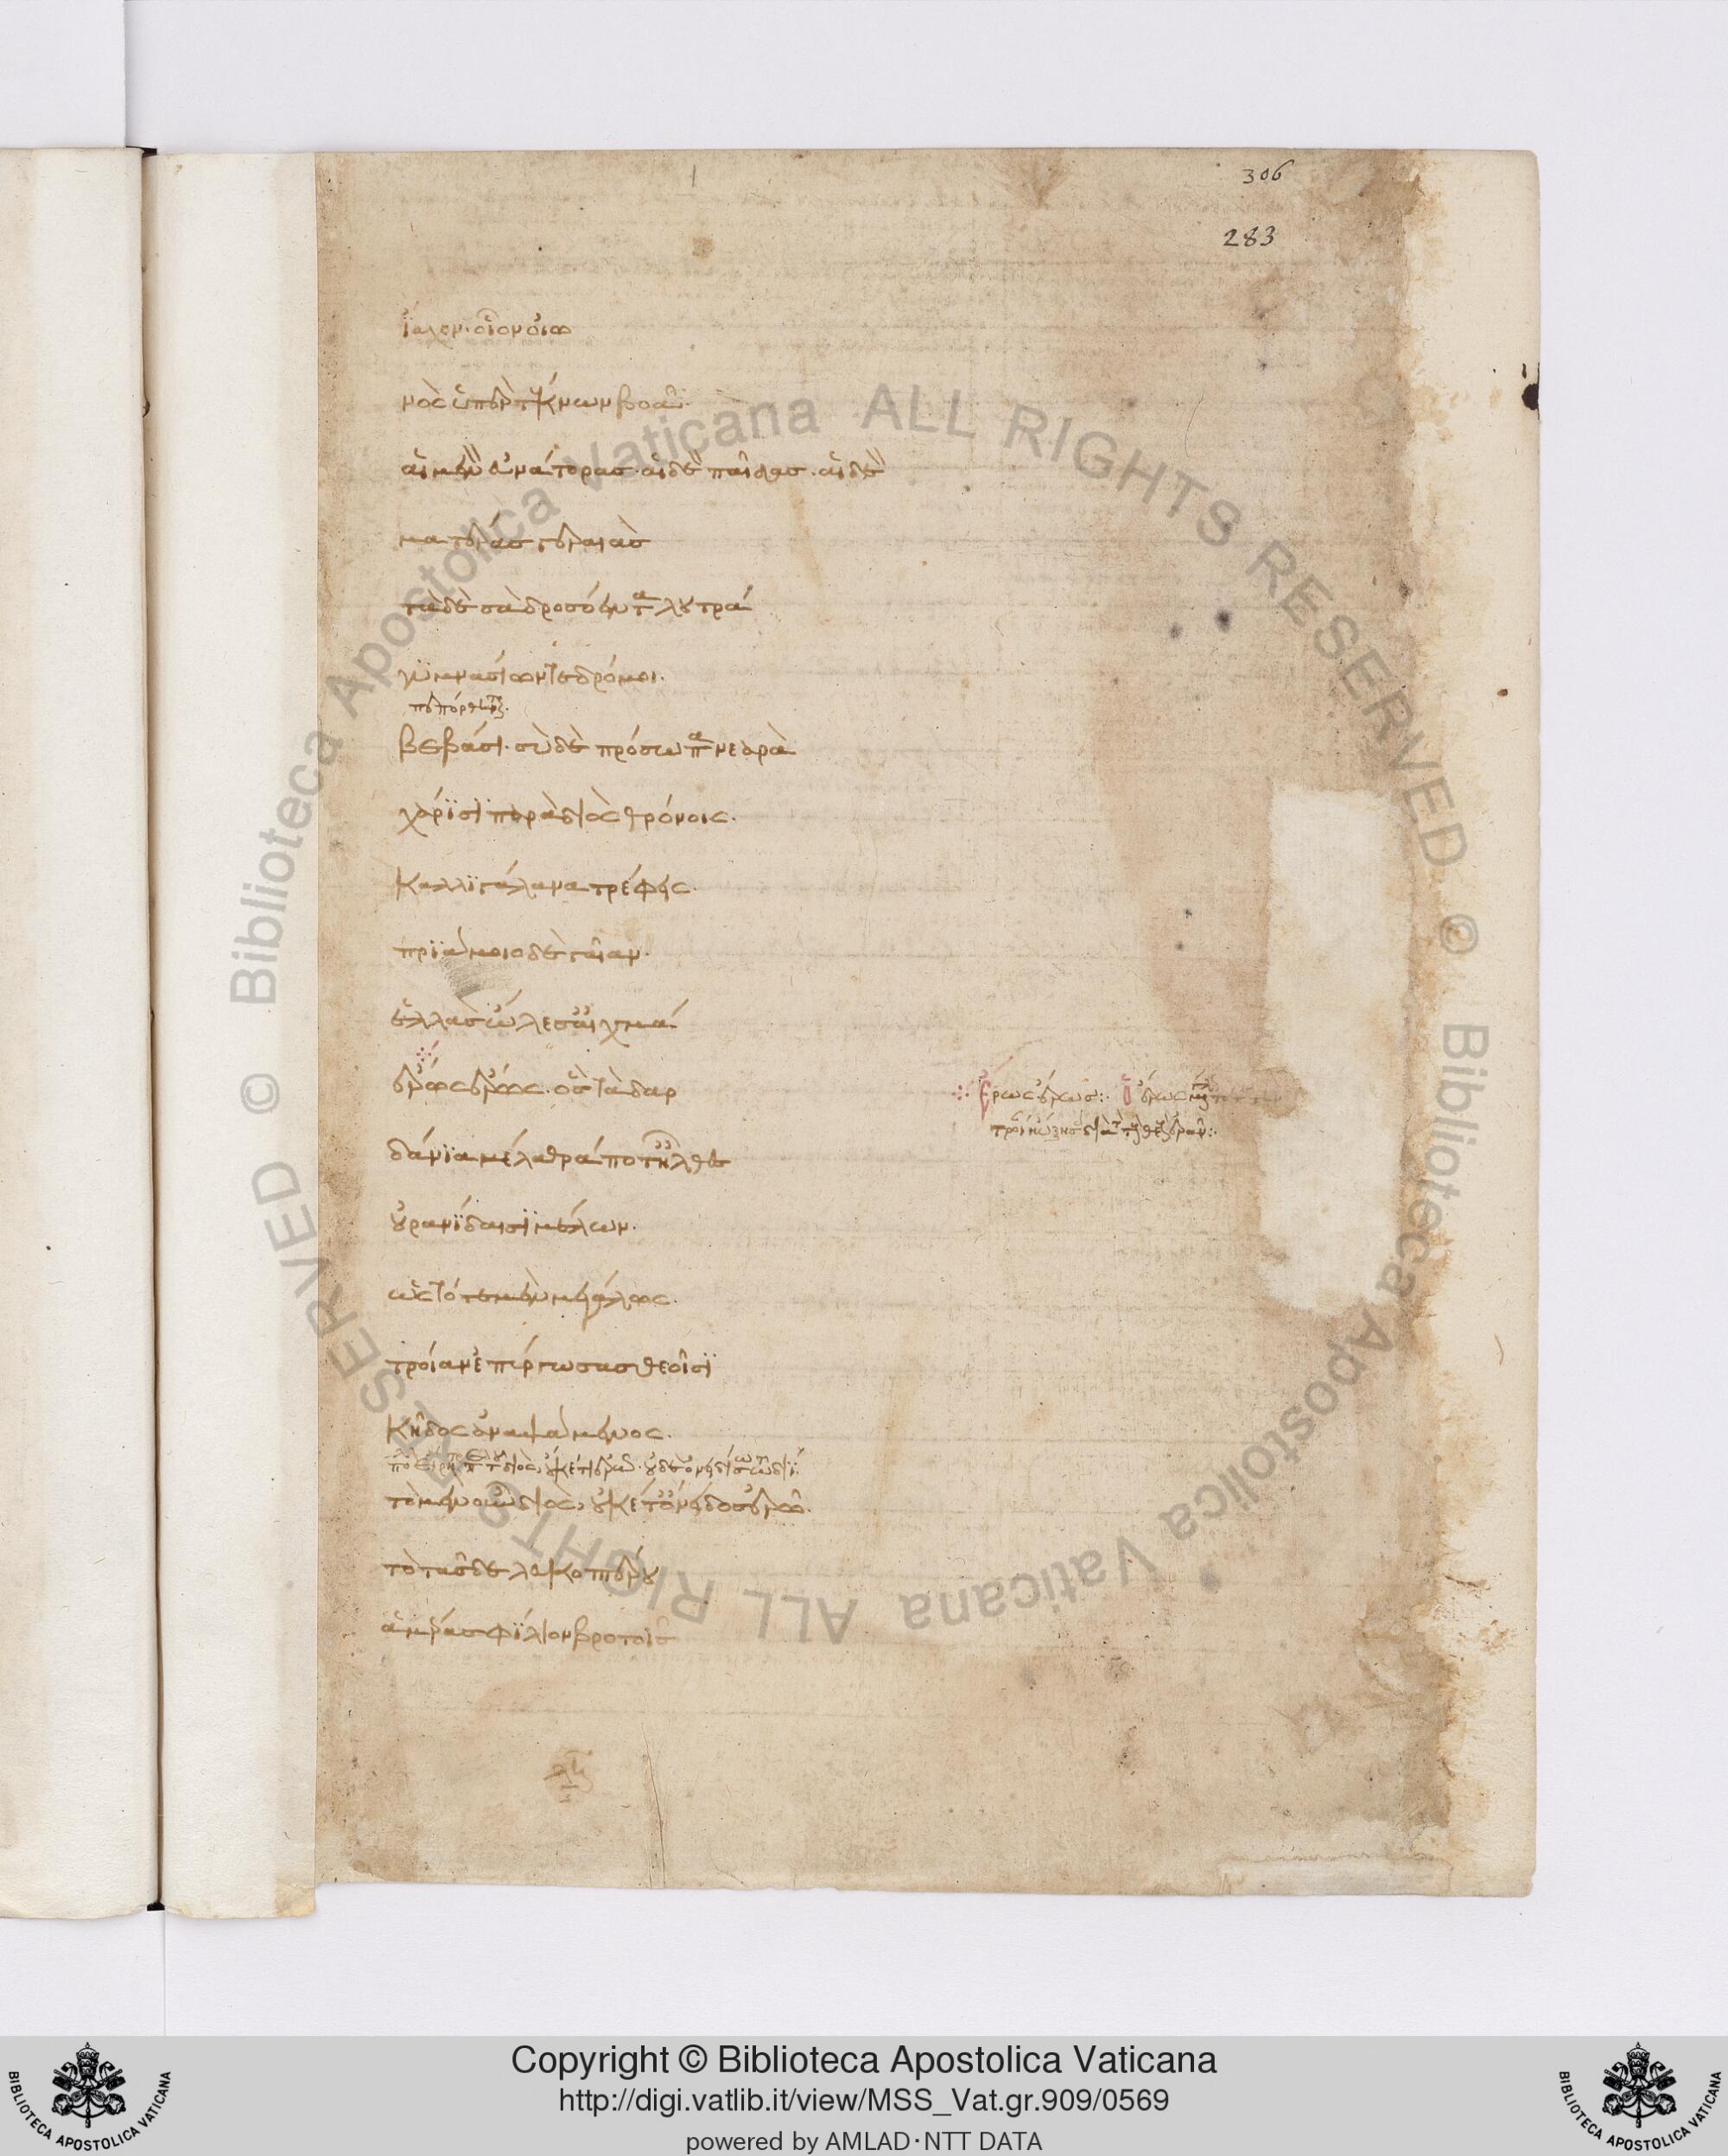 306
283
ἴαχον· οἷον οἰω
νὸς ὑπὲρ τέκνων βοᾶ·
αἱ μὲν εὐνάτορας· αἱ δὲ παῖδας· αἱ δὲ
ματέρας γεραιάς
τὰ δὲ σὰ δροσόεντα λουτρά
γυμνασίων τε δρόμοι·
βεβάσι· σὺ δὲ πρόσωπα νεαρὰ
χάρισι παρὰ διὸς θρόνοις·
καλλιγάλανα τρέφεις·
πριάμοιο δὲ γαῖαν·
ἑλλὰς ὤλεσ' αἰχμά
ἔρως ἔρως· ὃς τὰ δαρ
δάνια μέλαθρά ποτ' ἦλθες
οὐρανίδαισι μέλων·
ὡς τότε μὲν μεγάλως·
τροίαν ἐπύργωσας θεοῖσι
κῆδος ἀναψάμενος·
τὸ μὲν οὖν διὸς, οὐκέτ' ὄνειδος ἐρῶ·
τὸ τᾶσδε λευκοπτέρου
ἁμέρας φίλιον βροτοῖς
Ἔρως ἔρως:· Ὁ ἔρως
Copyright © Biblioteca Apostolica Vaticana
http://digi.vatlib.it/view/MSS_Vat.gr.909/0569
powered by AMLAD·NTT DATA
BIBLIOTECA APOSTOLICA VATICANA
BIBLIOTECA APOSTOLICA VATICANA
© Biblioteca Apostolica Vaticana ALL RIGHTS RESERVED © Biblioteca Apostolica Vaticana ALL RIGHTS RESERVED